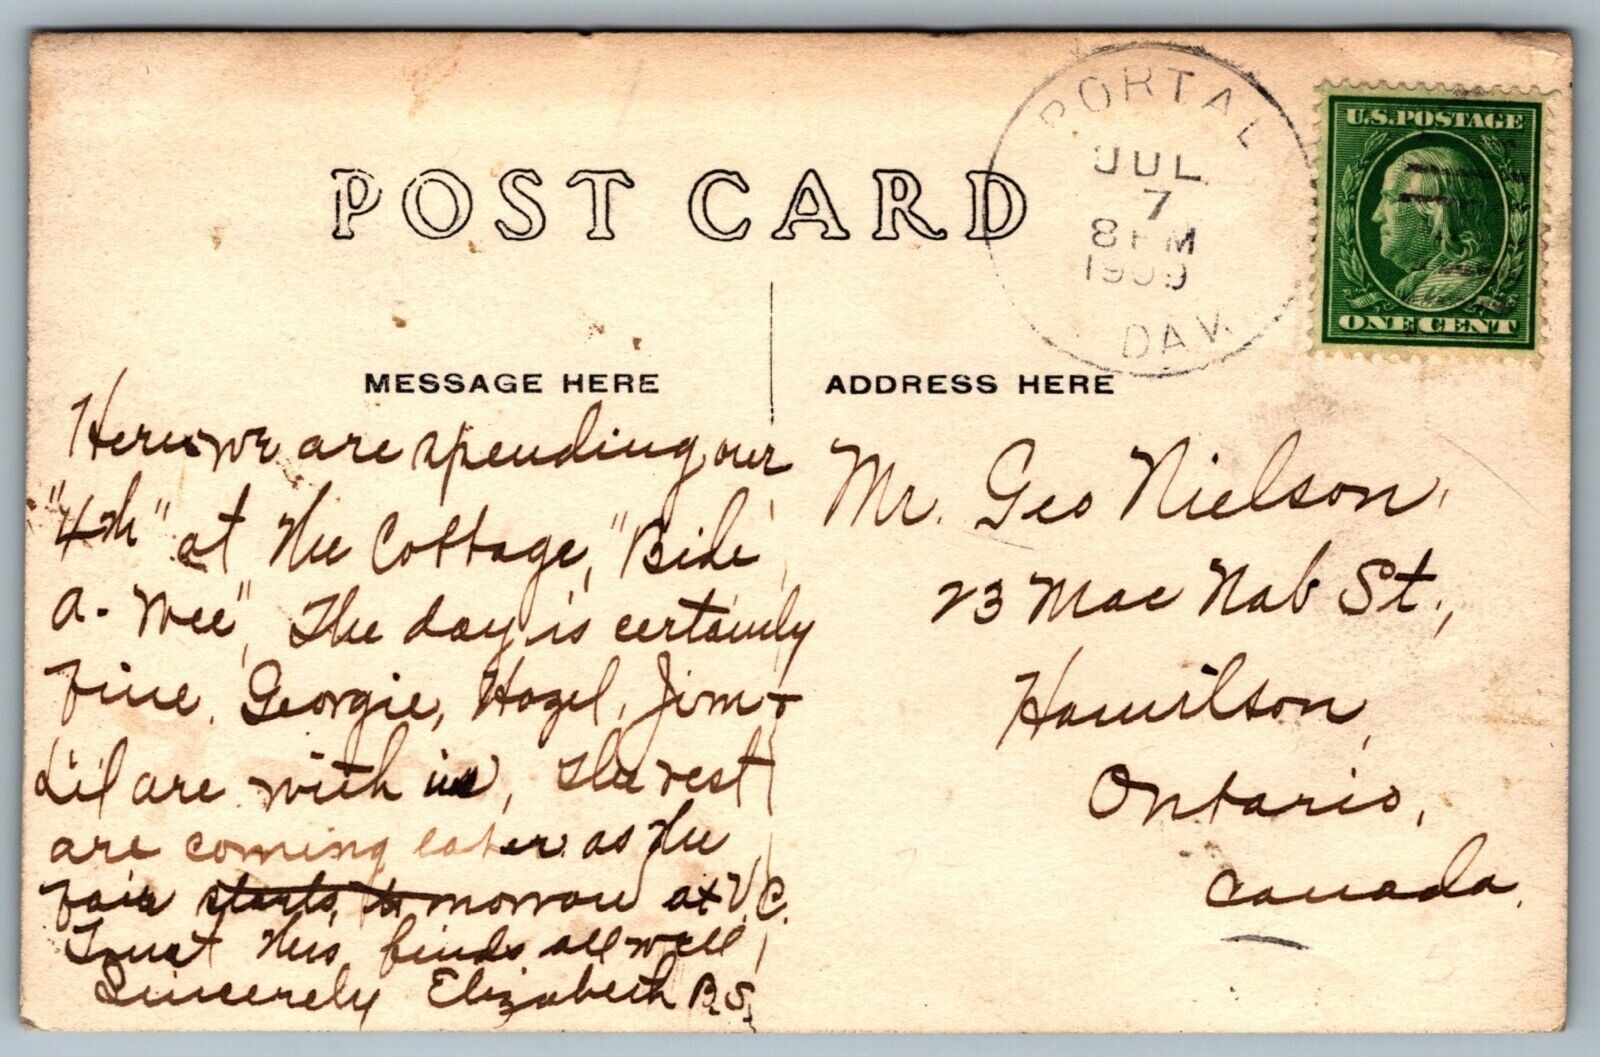 POST CARD
PORTAL
JUL
7
8 PM
1909
DAK.
U.S. POSTAGE
ONE CENT
MESSAGE HERE
ADDRESS HERE
Here we are spending our
"4th" at the Cottage, "Bide
a-Wee", The day is certainly
fine. Georgie, Hazel, Jim +
Lil are with us, The rest
are coming later as the
Fair starts tomorrow at V.C.
Trust this finds all well,
Sincerely Elizabeth B.S.
Mr. Geo Nielson,
23 Mac Nab St.,
Hamilton,
Ontario,
Canada.